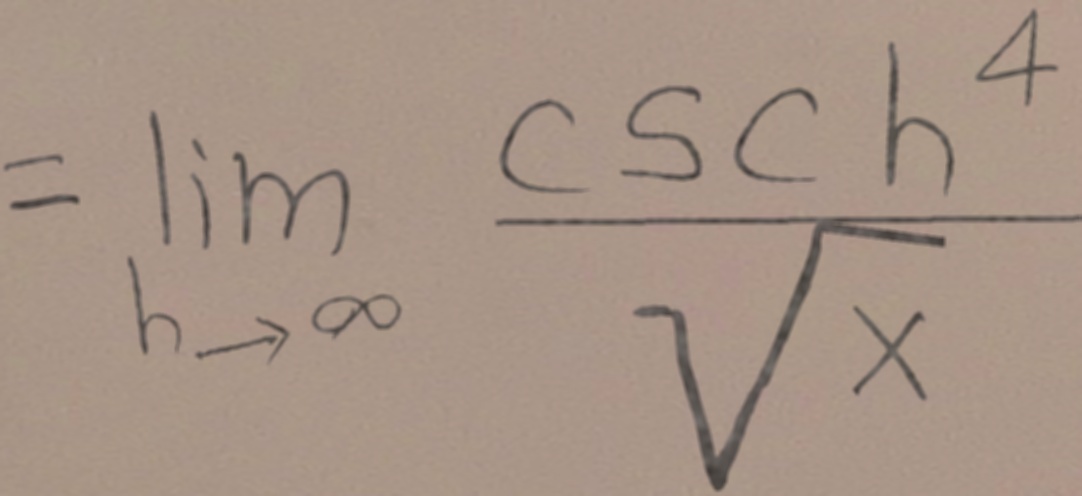 = lim_{h→∞} \frac{csc h^4}{\sqrt{x}}